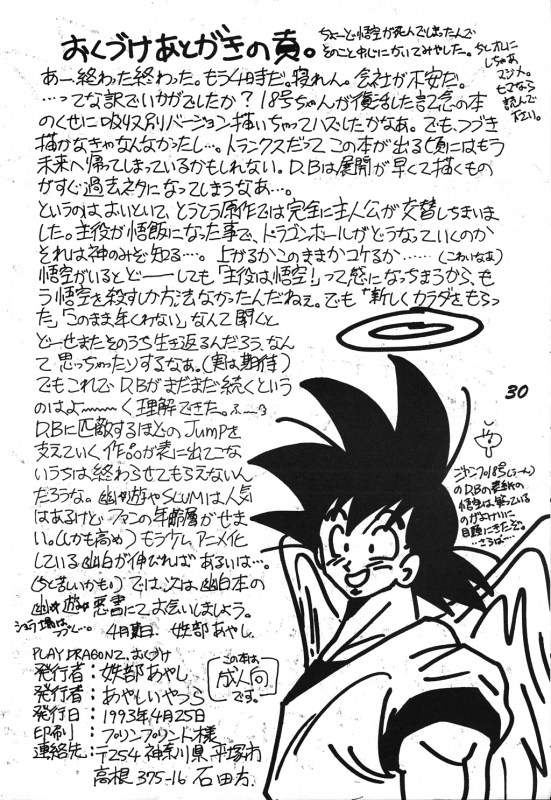 おくづけあとがきの頁。
ちょーど悟空が死んでしまったんで
そのこと中心にかいてみやした。
マジメ。
読んで
下さい。
あー、終わった終わった。もう4時だ。寝れん。会社が不安だ。
…ってな訳でいかがでしたか？18号ちゃんが復活した記念の本
のくせに吸収別バージョン描いちゃってハズしたかなあ。でも、つづき
描かなきゃなんなかったし…。トランクスだってこの本が出る頃にはもう
未来へ帰ってしまっているかもしれない。D.Bは展開が早くて描くもの
がすぐ過去ネタになってしまうなあ…。
というのは、よいといて、とうとう原作では完全に主人公が交替しちまいま
した。主役が悟飯になった事で、ドラゴンボールがどうなっていくのか
それは神のみぞ知る…。上がるかこのままかコケるか……(こわいなぁ)
悟空がいるとどーーしても「主役は悟空!」って感じになっちまうから、も
う悟空を殺すしか方法なかったんだねぇ。でも「新しくカラダをもらっ
た」「このまま年くわない」なんて聞くと
どーせまたそのうち生き返るんだろう、なん
て思っちゃったりするなあ。(実は期待)
でもこれでD.Bがまだまだ続くという
のはよ〜〜く理解できた。ふーっ
D.Bに匹敵するほどのJUMPを
支えていく作品が表に出てこな
いうちは終わらせてもらえないん
だろうな。幽☆遊やSLUMは人気
はあるけどファンの年齢層がせま
い。(しかも高め)もうけん アニメ化
している幽白が伸びればあるいは…。
(ちと苦しいかも)では、次は幽白本の
幽☆遊☆悪書にてお会いしましょう。
4月夏日. 妖部あやし.
30
ジャンプ18号(ぐらい)
のD.Bの表紙の
悟空は笑っている
のがよけいに
目頭にきたぞ。
…さらば…
PLAY DRAGON 2. おくづけ
発行者：妖部あやし
発行者：あやしいやつら
発行日：1993年4月25日
印刷：プリンプリント様
連絡先：〒254 神奈川県平塚市
高根375-16 石田方.
この本は
成人向
です。